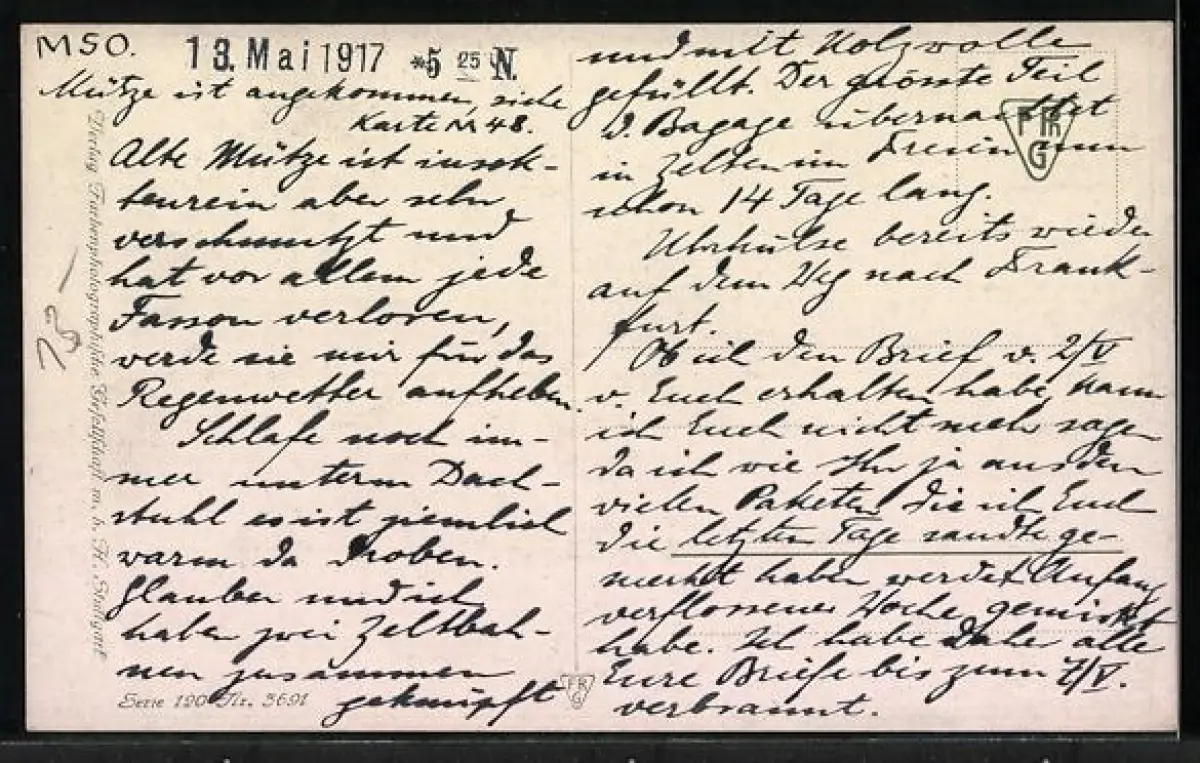 MSO.
13. Mai 1917 *5 25 N.
Mütze ist angekommen, siehe
Karte Nr 48.
Alte Mütze ist insek-
tenrein aber sehr
verschmutzt und
hat vor allem jede
Fasson verloren,
werde sie mir für das
Regenwetter aufheben.
Schlafe noch im-
mer unterm Dach-
stuhl es ist ziemlich
warm da droben.
Glauber und ich
haben zwei Zeltbah-
nen zusammen
geknüpft
und mit Holzwolle
gefüllt. Der grösste Teil
d. Bagage übernachtet
in Zelten im Freien nun
schon 14 Tage lang.
Uhrhülse bereits wieder
auf dem Weg nach Frank-
furt.
Ob ich den Brief v. 2/V
v. Euch erhalten habe, kann
ich Euch nicht mehr sagen
da ich wie Ihr ja aus den
vielen Paketen, die ich Euch
die letzten Tage sandte ge-
merkt haben werdet Anfang
verflossener Woche gemistet
habe. Ich habe daher alle
Eure Briefe bis zum 7/V.
verbrannt.
Verlag Farbenphotographische Gesellschaft m. b. H. Stuttgart
Serie 190 Nr. 3691
FPhG
75